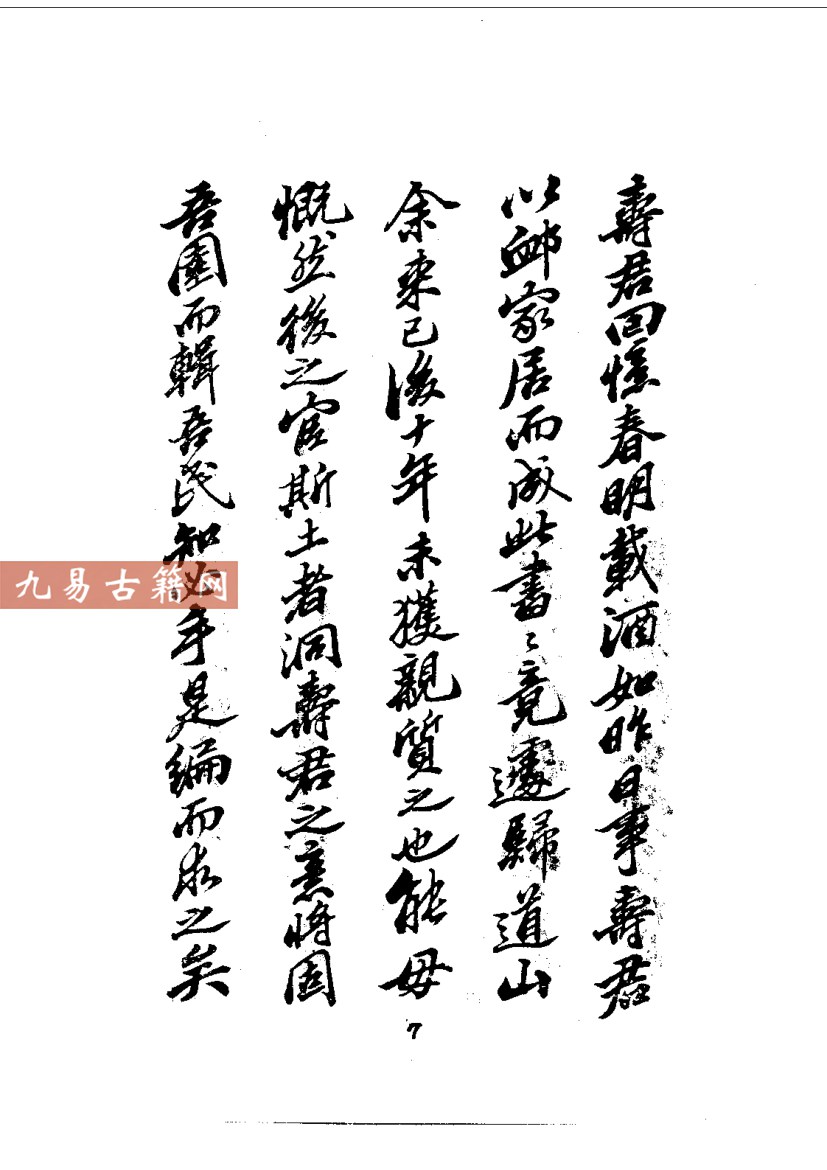 壽君回憶春明載酒如昨日事壽君
以卹家居而成此書〻竟遽歸道山
余來已後十年未獲親質之也能毋
慨然後之官斯土者洞壽君之意將固
吾圉而輯吾民知必手是編而求之矣
7
九易古籍网